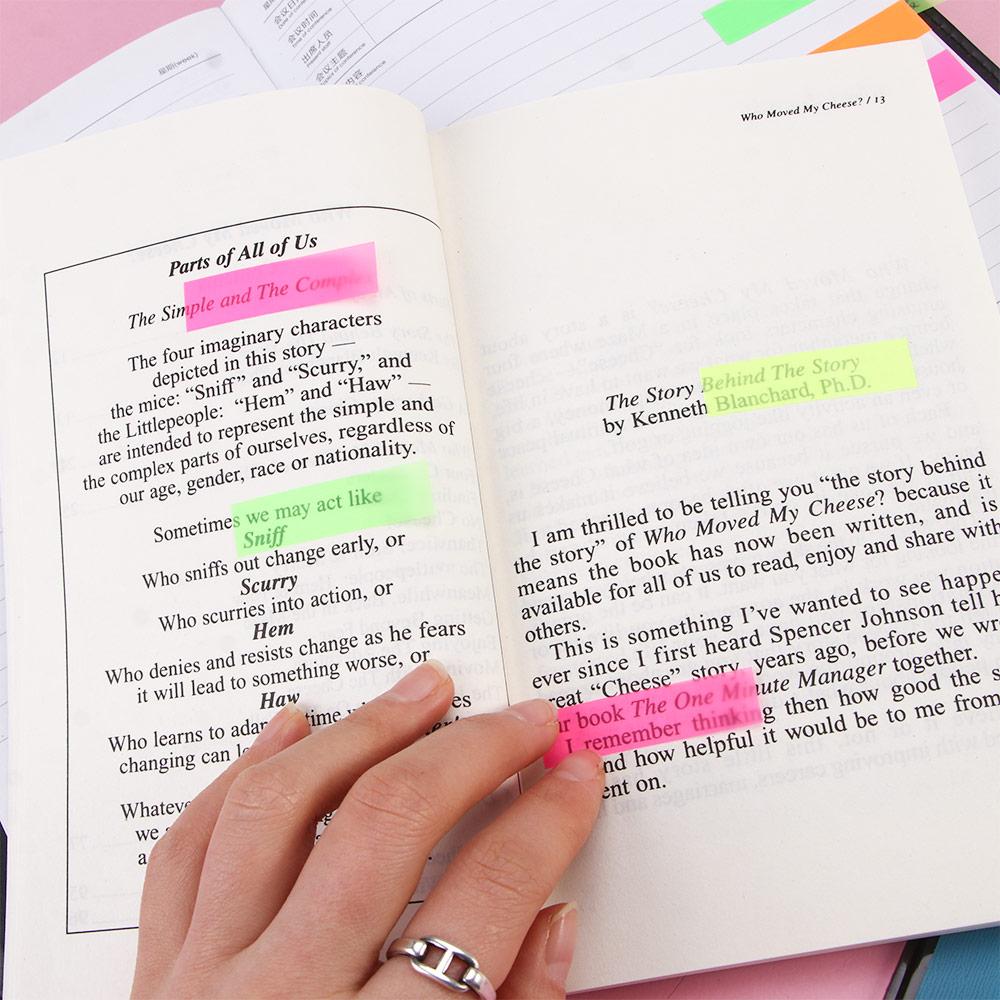 星期(week)
会议时间
Time of conference
出席人员
会议主题
内容
Who Moved My Cheese? / 13
Parts of All of Us
The Simple and The Comple
The four imaginary characters
depicted in this story —
the mice: “Sniff” and “Scurry,” and
the Littlepeople: “Hem” and “Haw” —
are intended to represent the simple and
the complex parts of ourselves, regardless of
our age, gender, race or nationality.
Sometimes we may act like
Sniff
Who sniffs out change early, or
Scurry
Who scurries into action, or
Hem
Who denies and resists change as he fears
it will lead to something worse, or
Haw
Who learns to adap time
changing can
Whateve
we
a
The Story Behind The Story
by Kenneth Blanchard, Ph.D.
I am thrilled to be telling you “the story behind
the story” of Who Moved My Cheese? because it
means the book has now been written, and is
available for all of us to read, enjoy and share with
others.
This is something I’ve wanted to see happe
ever since I first heard Spencer Johnson tell h
reat “Cheese” story, years ago, before we wr
r book The One Minute Manager together.
I remember thinking then how good the s
nd how helpful it would be to me from
ent on.